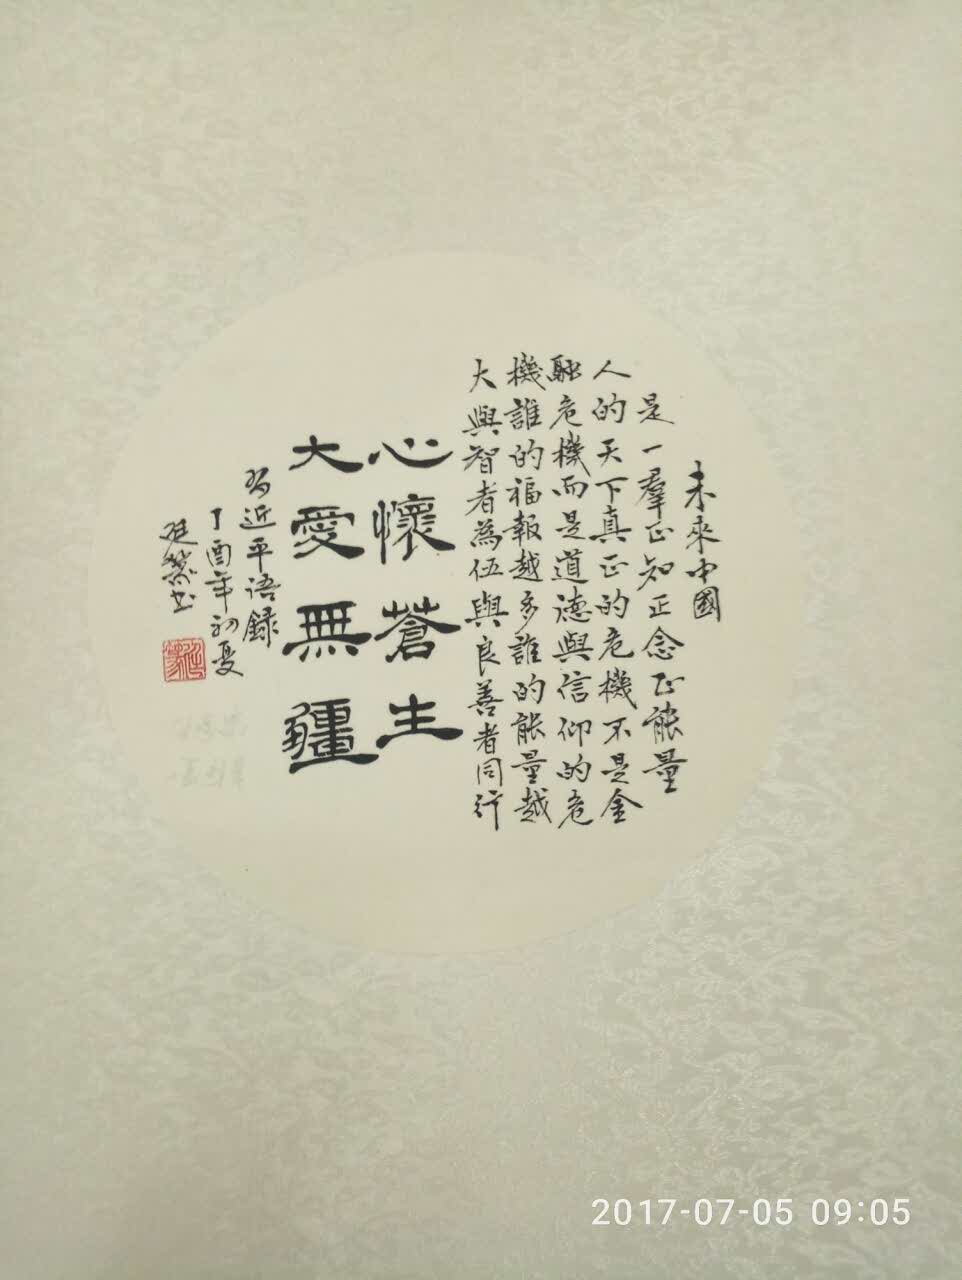 未來中國
是一羣正知正念正能量
人的天下真正的危機不是金
融危機而是道德與信仰的危
機誰的福報越多誰的能量越
大與智者為伍與良善者同行
心懷蒼生
大愛無疆
習近平語錄
丁酉年初夏
廷篆书
2017-07-05 09:05